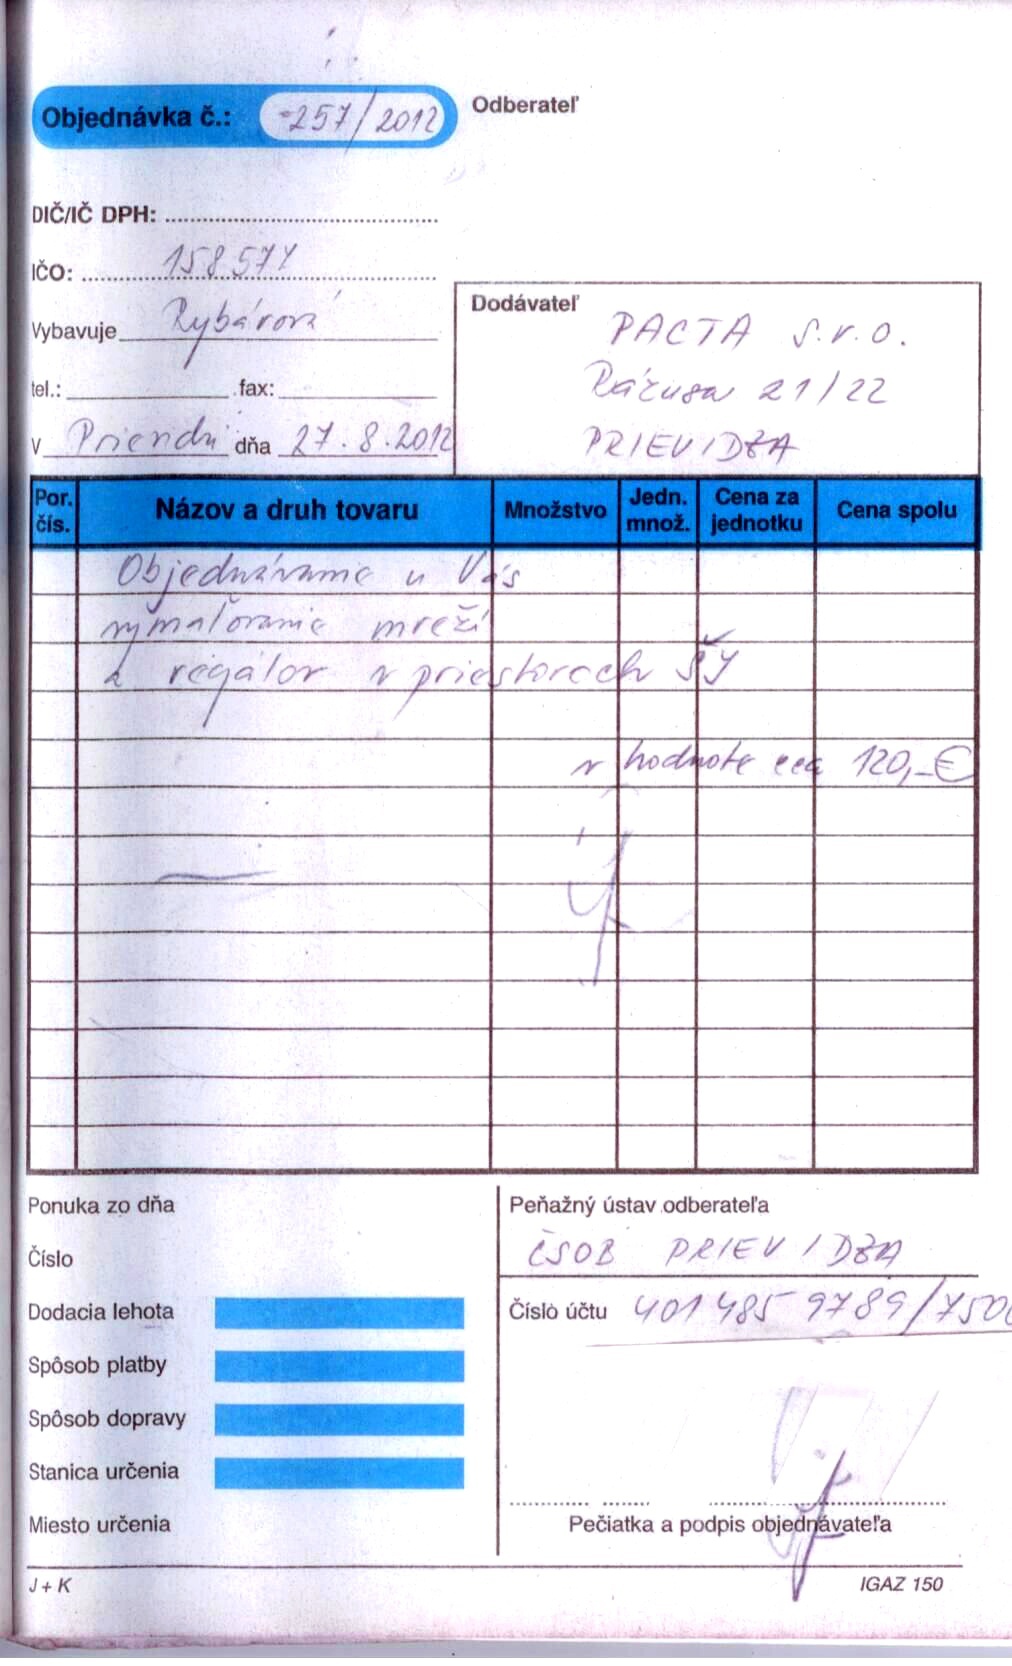 Objednávka č.: 257/2012
Odberateľ
DIČ/IČ DPH:
IČO: 158577
Vybavuje Rybárová
tel.: fax:
V Prievidzi dňa 27.8.2012
Dodávateľ
PACTA s.r.o.
Rázusa 21/22
PRIEVIDZA
Por. čís. Názov a druh tovaru Množstvo Jedn. množ. Cena za jednotku Cena spolu
Objednávame u Vás
vymaľovanie mreží
a regálov v priestoroch ŠJ
v hodnote cca 120,-€
Ponuka zo dňa
Číslo
Dodacia lehota
Spôsob platby
Spôsob dopravy
Stanica určenia
Miesto určenia
Peňažný ústav odberateľa
ČSOB PRIEVIDZA
Číslo účtu 401 485 9789/7500
Pečiatka a podpis objednávateľa
J + K
IGAZ 150